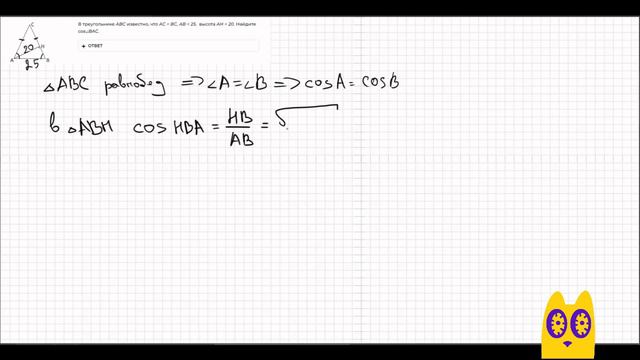 В треугольнике ABC известно, что AC = BC, AB = 25, высота AH = 20. Найдите
cos∠BAC
+ ОТВЕТ
C
20
H
A
B
25
△ABC равнобед => ∠A = ∠B => cos A = cos B
в △ABH cos HBA = HB/AB = √